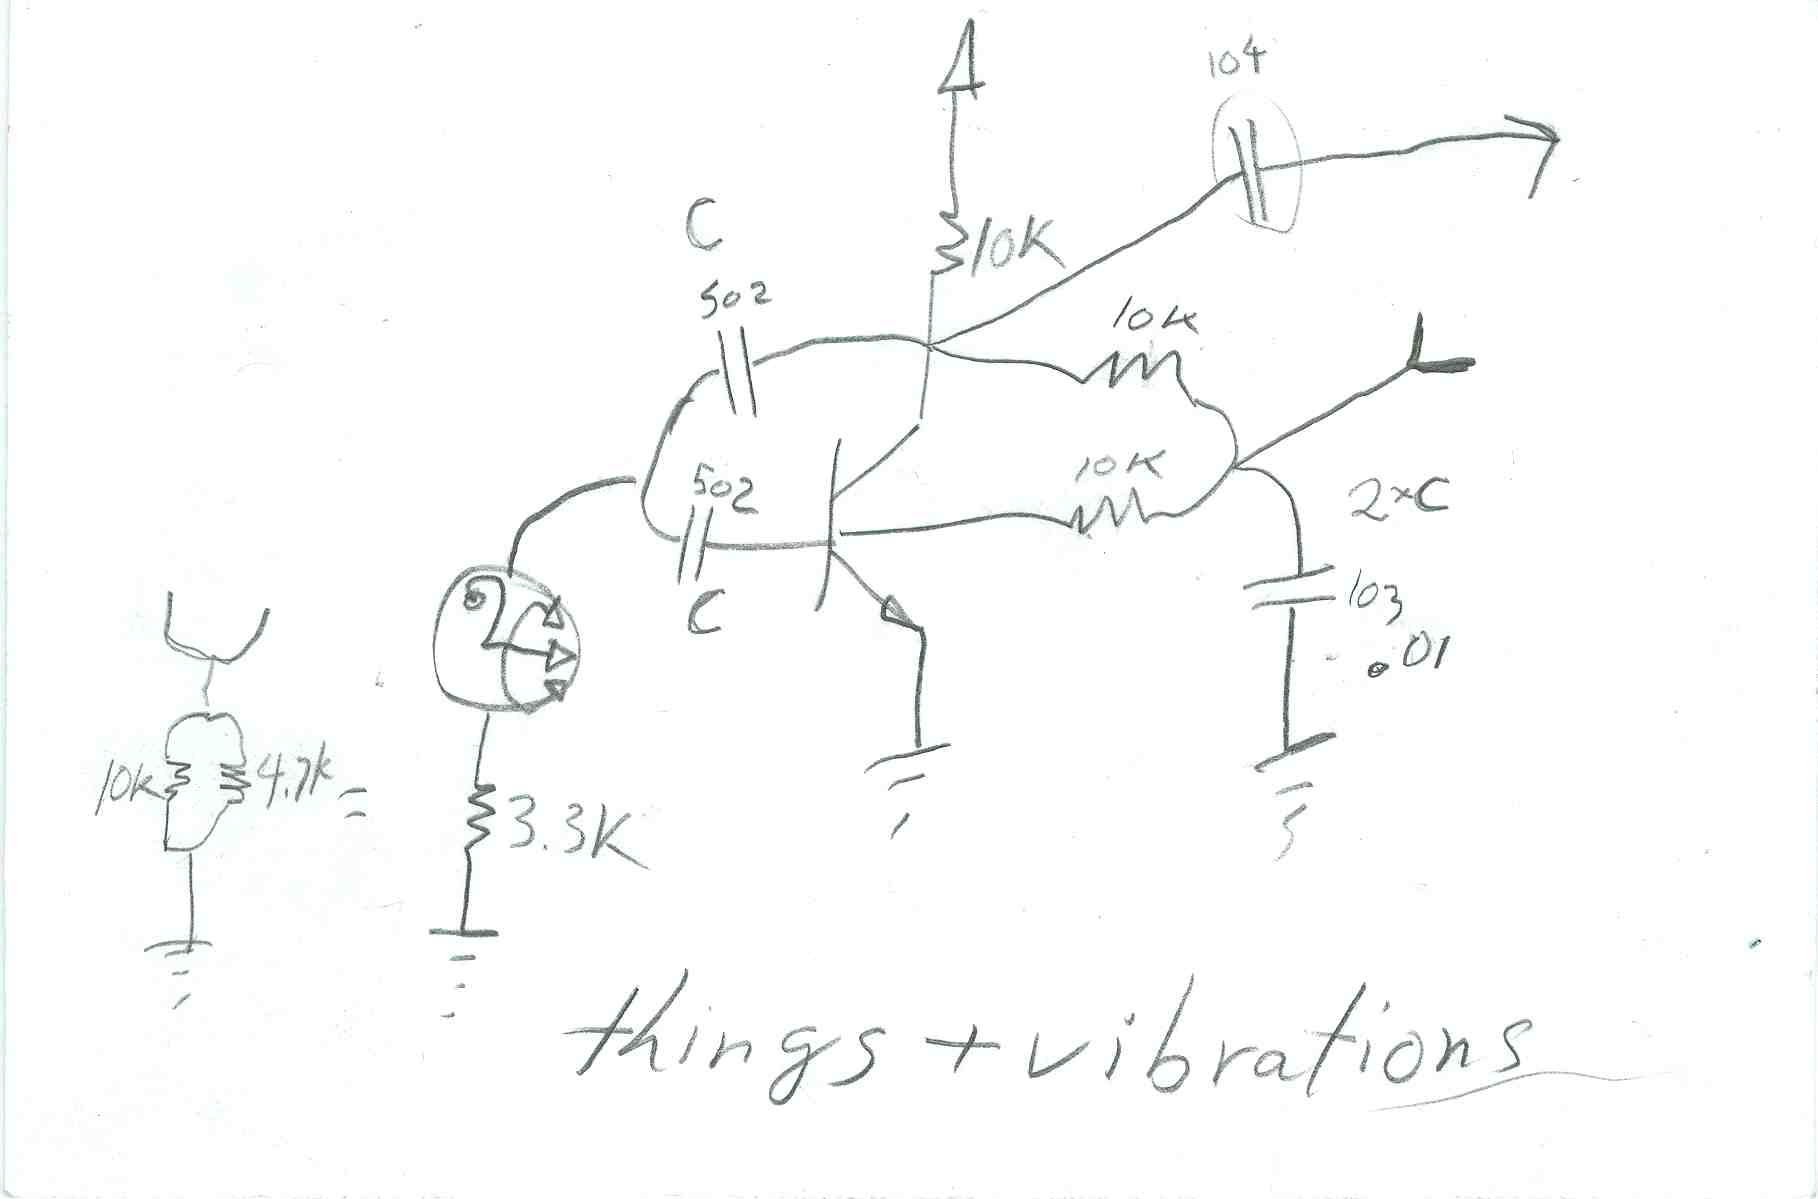 104
C
10K
502
10K
10K
502
2×C
103
C
.01
10k
4.7k
=
3.3K
things + vibrations